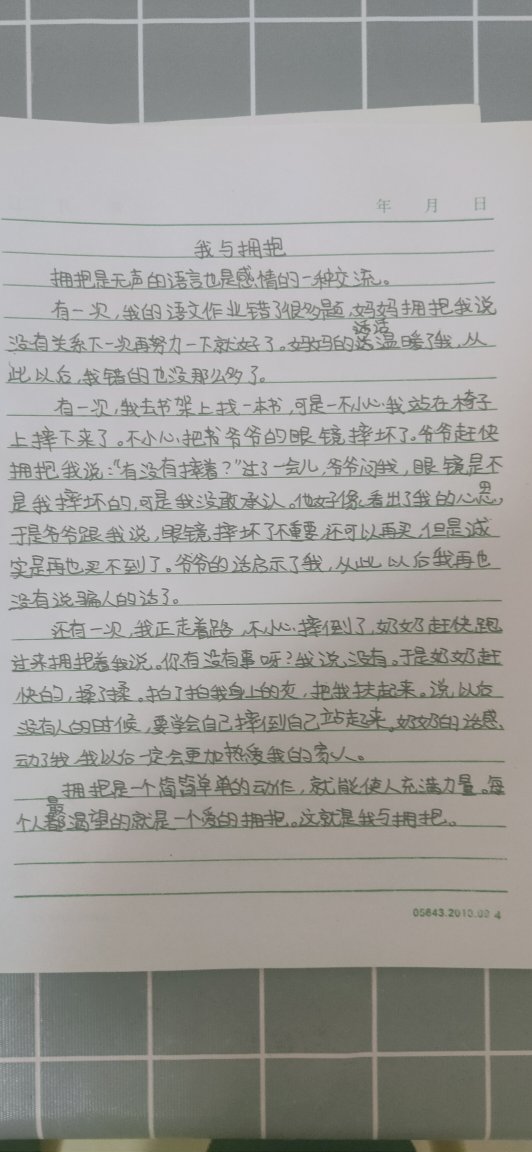 年 月 日
我与拥抱
拥抱是无声的语言也是感情的一种交流。
有一次,我的语文作业错了很多题,妈妈拥抱我说
没有关系下一次再努力一下就好了。妈妈的话温暖了我,从
此以后,我错的也没那么多了。
有一次,我去书架上找一本书,可是一不小心我站在椅子
上摔下来了。不小心把爷爷的眼镜摔坏了。爷爷赶快
拥抱我说:“有没有摔着?”过了一会儿,爷爷问我,眼镜是不
是我摔坏的,可是我没敢承认。他好像看出了我的心思,
于是爷爷跟我说,眼镜摔坏了不重要,还可以再买,但是诚
实是再也买不到了。爷爷的话启示了我,从此以后我再也
没有说骗人的话了。
还有一次,我正走着路,不小心摔倒了,奶奶赶快跑
过来拥抱着我说。你有没有事呀?我说没有。于是奶奶赶
快的,揉了揉。拍了拍我身上的灰,把我扶起来。说,以后
没有人的时候,要学会自己摔倒自己站起来。奶奶的话感
动了我,我以后一定会更加热爱我的家人。
拥抱是一个简简单单的动作,就能使人充满力量。每
个人最渴望的就是一个爱的拥抱。这就是我与拥抱。
05643.2010.09 4